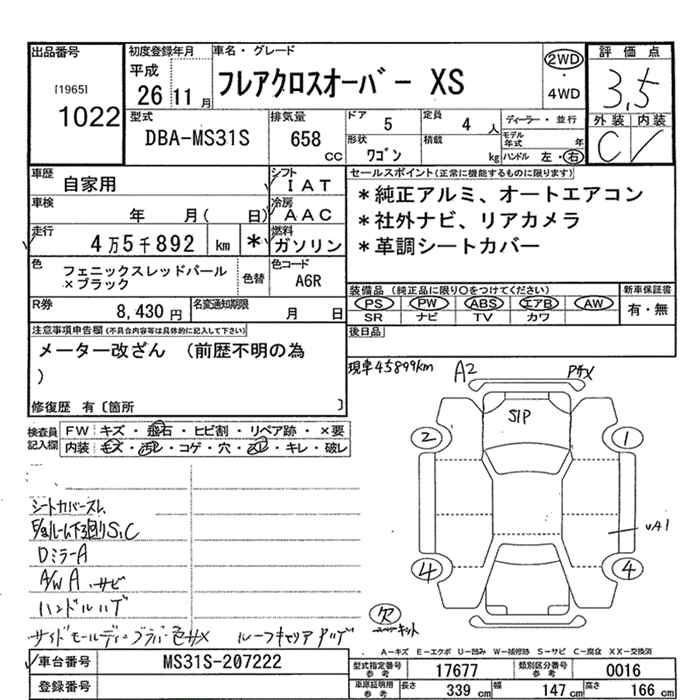 出品番号
[1965]
1022
初度登録年月
平成
26 11月
車名・グレード
フレアクロスオーバー XS
2WD
・
4WD
評価点
3.5
型式
DBA-MS31S
排気量
658 cc
ドア 5
定員 4 人
ディーラー・並行
形状
ワゴン
積載 kg
モデル年式 年
ハンドル 左・右
外装 内装
C
車歴
自家用
シフト
IAT
車検
年 月( 日)
冷房
AAC
走行
4万5千892 km *
燃料
ガソリン
色
フェニックスレッドパール
×ブラック
色替
色コード
A6R
R券
8,430 円
名変通知期限
月 日
セールスポイント(正常に機能するものに限ります)
*純正アルミ、オートエアコン
*社外ナビ、リアカメラ
*革調シートカバー
装備品 (純正品に限り○をつけてください)
PS PW ABS エアB AW
SR ナビ TV カワ
新車保証書
有・無
後日品
注意事項申告欄(不具合内容等は具体的に記入して下さい)
メーター改ざん (前歴不明の為
)
修復歴 有〔箇所 〕
現車45899km
A2
検査員
記入欄
FW キズ・飛石・ヒビ割・リペア跡・×要
内装 キズ・汚レ・コゲ・穴・スレ・キレ・破レ
シートカバースレ
下廻りS、C
DミラーA
A/W A、サビ
ハンドルハゲ
SIP
2
1
4
4
欠
A-キズ E-エクボ U-凹み W-補修跡 S-サビ C-腐食 XX-交換済
車台番号
MS31S-207222
登録番号
型式指定番号
参考
17677
類別区分番号
参考
0016
車庫証明用
参考
長さ 339 cm
幅 147 cm
高さ 166 cm